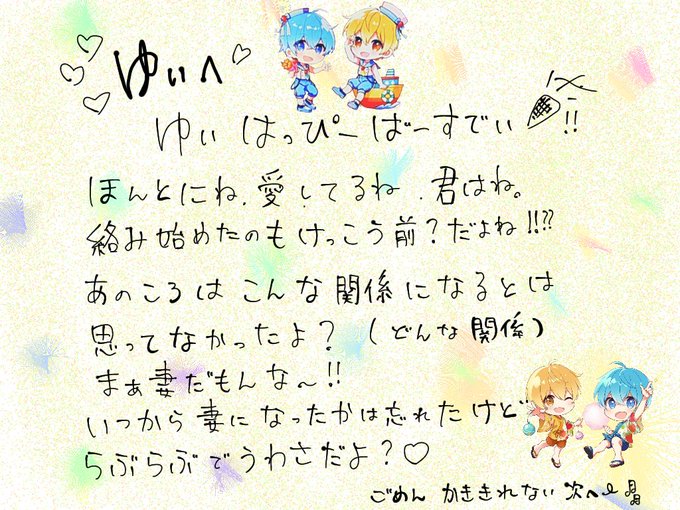 ゆぃへ
ゆぃ はっぴーばーすでぃ!!
ほんとにね、愛してるね、君はね。
絡み始めたのもけっこう前?だよね!!??
あのころはこんな関係になるとは
思ってなかったよ?(どんな関係)
まぁ妻だもんな〜!!
いつから妻になったかは忘れたけど
らぶらぶでうわさだよ?♡
ごめん かききれない 次へ